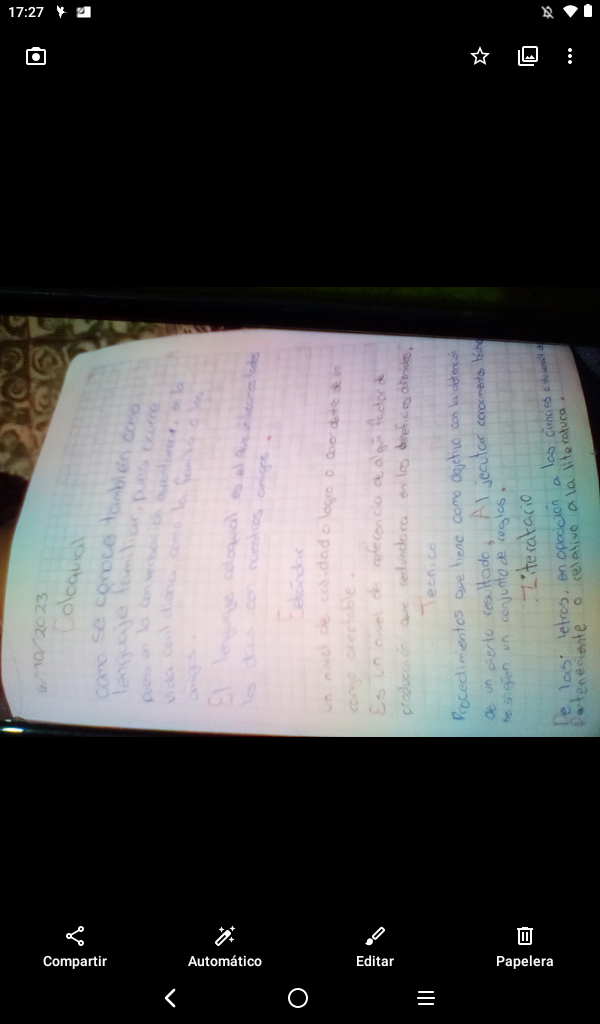 17:27
6/10/2023
Coloqual
como se conoce también como
lenguaje familiar, pues ocurre
pues en la conversación espontanea, en la
vida cautidiana, como la familia o los
amigos.
El lenguaje coloqual es el que utilizamos todos
los días con nuestros amigos.
Estándar
un nivel de calidad o logro o acor dentro de un
rango aceptable.
Es un nivel de referencia de algún factor de
que redundara en los beneficios
Tecnico
Procedimientos que tiene como objetivo con la obtención
de un cierto resultado, Al jecutar conocimientos
se sigen un conjunto de reglas.
Literatacio
De las letras, en oposición a las ciencias
Perteneciente o relativo a la literatura.
Compartir
Automático
Editar
Papelera